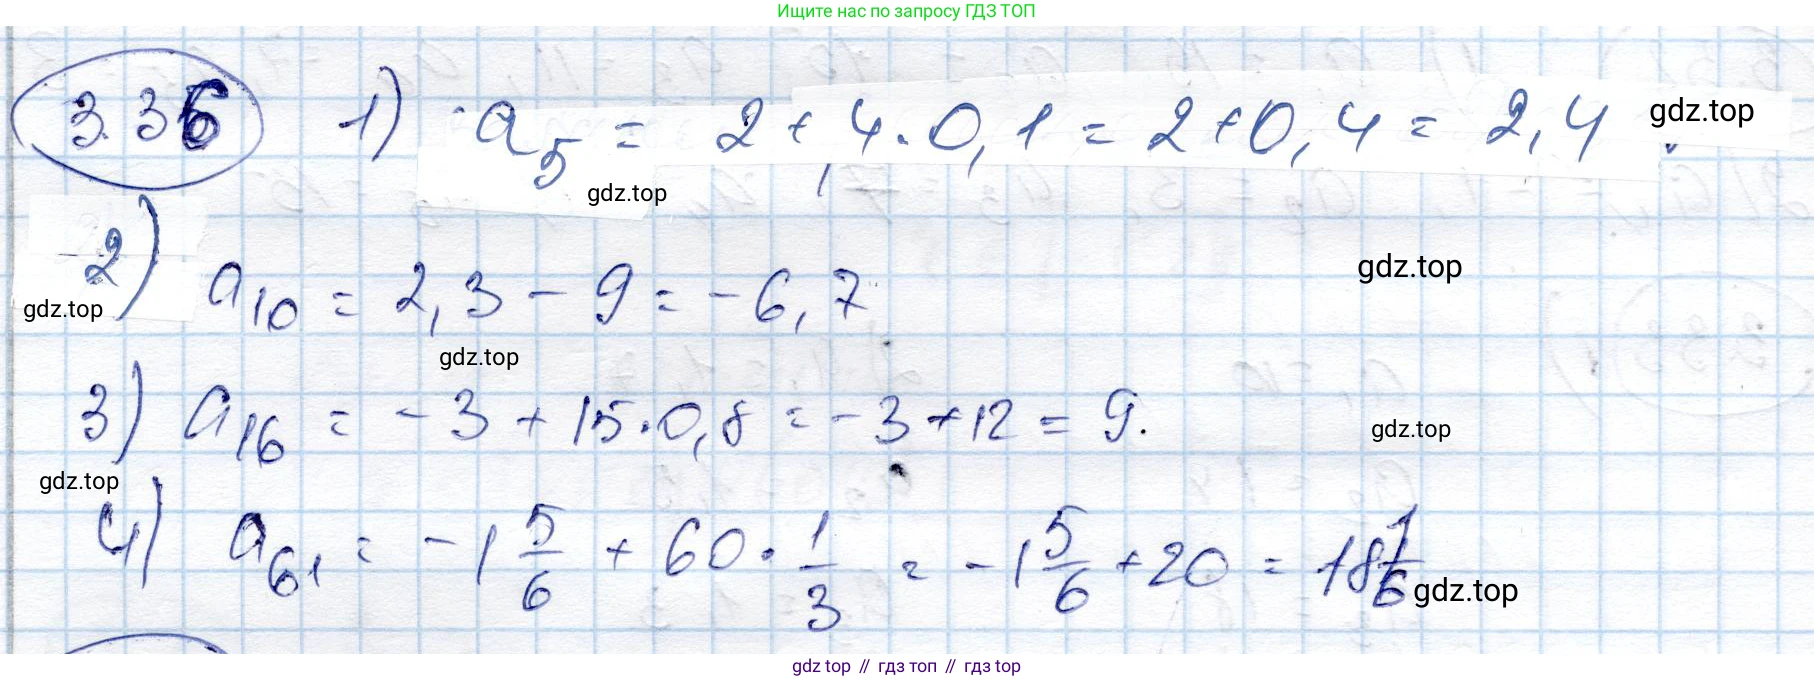 Ищите нас по запросу ГДЗ ТОП
3.36 1) a₅ = 2 + 4 · 0,1 = 2 + 0,4 = 2,4 gdz.top
gdz.top
2) a₁₀ = 2,3 - 9 = -6,7 gdz.top
gdz.top
gdz.top
3) a₁₆ = -3 + 15 · 0,8 = -3 + 12 = 9. gdz.top
gdz.top
4) a₆₁ = -1 5/6 + 60 · 1/3 = -1 5/6 + 20 = 18 1/6 gdz.top
gdz top // гдз топ // гдз top